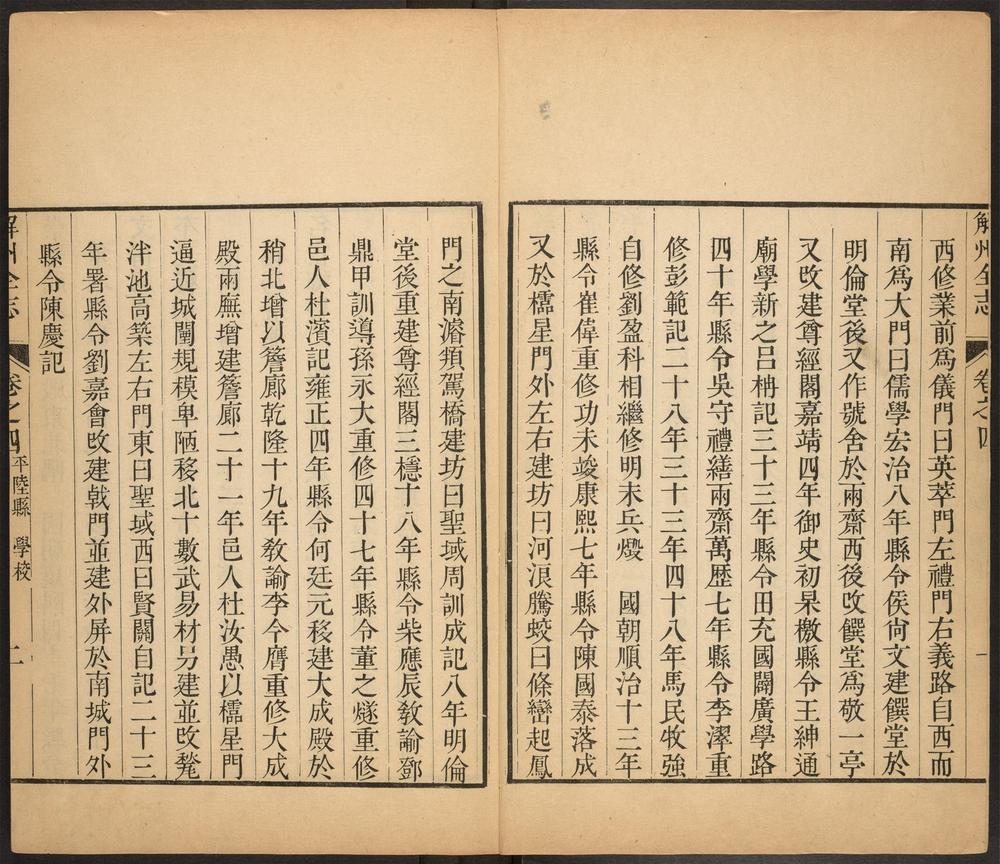 解州全志
卷之四
一
西修業前爲儀門曰英萃門左禮門右義路自西而
南爲大門曰儒學宏治八年縣令侯尙文建饌堂於
明倫堂後又作號舍於兩齋西後改饌堂爲敬一亭
又改建尊經閣嘉靖四年御史初杲檄縣令王紳通
廟學新之呂柟記三十三年縣令田充國闢廣學路
四十年縣令吳守禮繕兩齋萬歷七年縣令李澤重
修彭範記二十八年三十三年四十八年馬民牧強
自修劉盈科相繼修明末兵燬 國朝順治十三年
縣令崔偉重修功未竣康熙七年縣令陳國泰落成
又於櫺星門外左右建坊曰河浪騰蛟曰條巒起鳳
門之南濬頖駕橋建坊曰聖域周訓成記八年明倫
堂後重建尊經閣三穩十八年縣令柴應辰敎諭鄧
鼎甲訓導孫永大重修四十七年縣令董之燧重修
邑人杜濱記雍正四年縣令何廷元移建大成殿於
稍北增以簷廊乾隆十九年敎諭李令膺重修大成
殿兩廡增建簷廊二十一年邑人杜汝愚以櫺星門
逼近城闉規模卑陋移北十數武易材另建並改甃
泮池高築左右門東曰聖域西曰賢關自記二十三
年署縣令劉嘉會改建戟門並建外屏於南城門外
縣令陳慶記
解州全志
卷之四平陸縣 學校
二